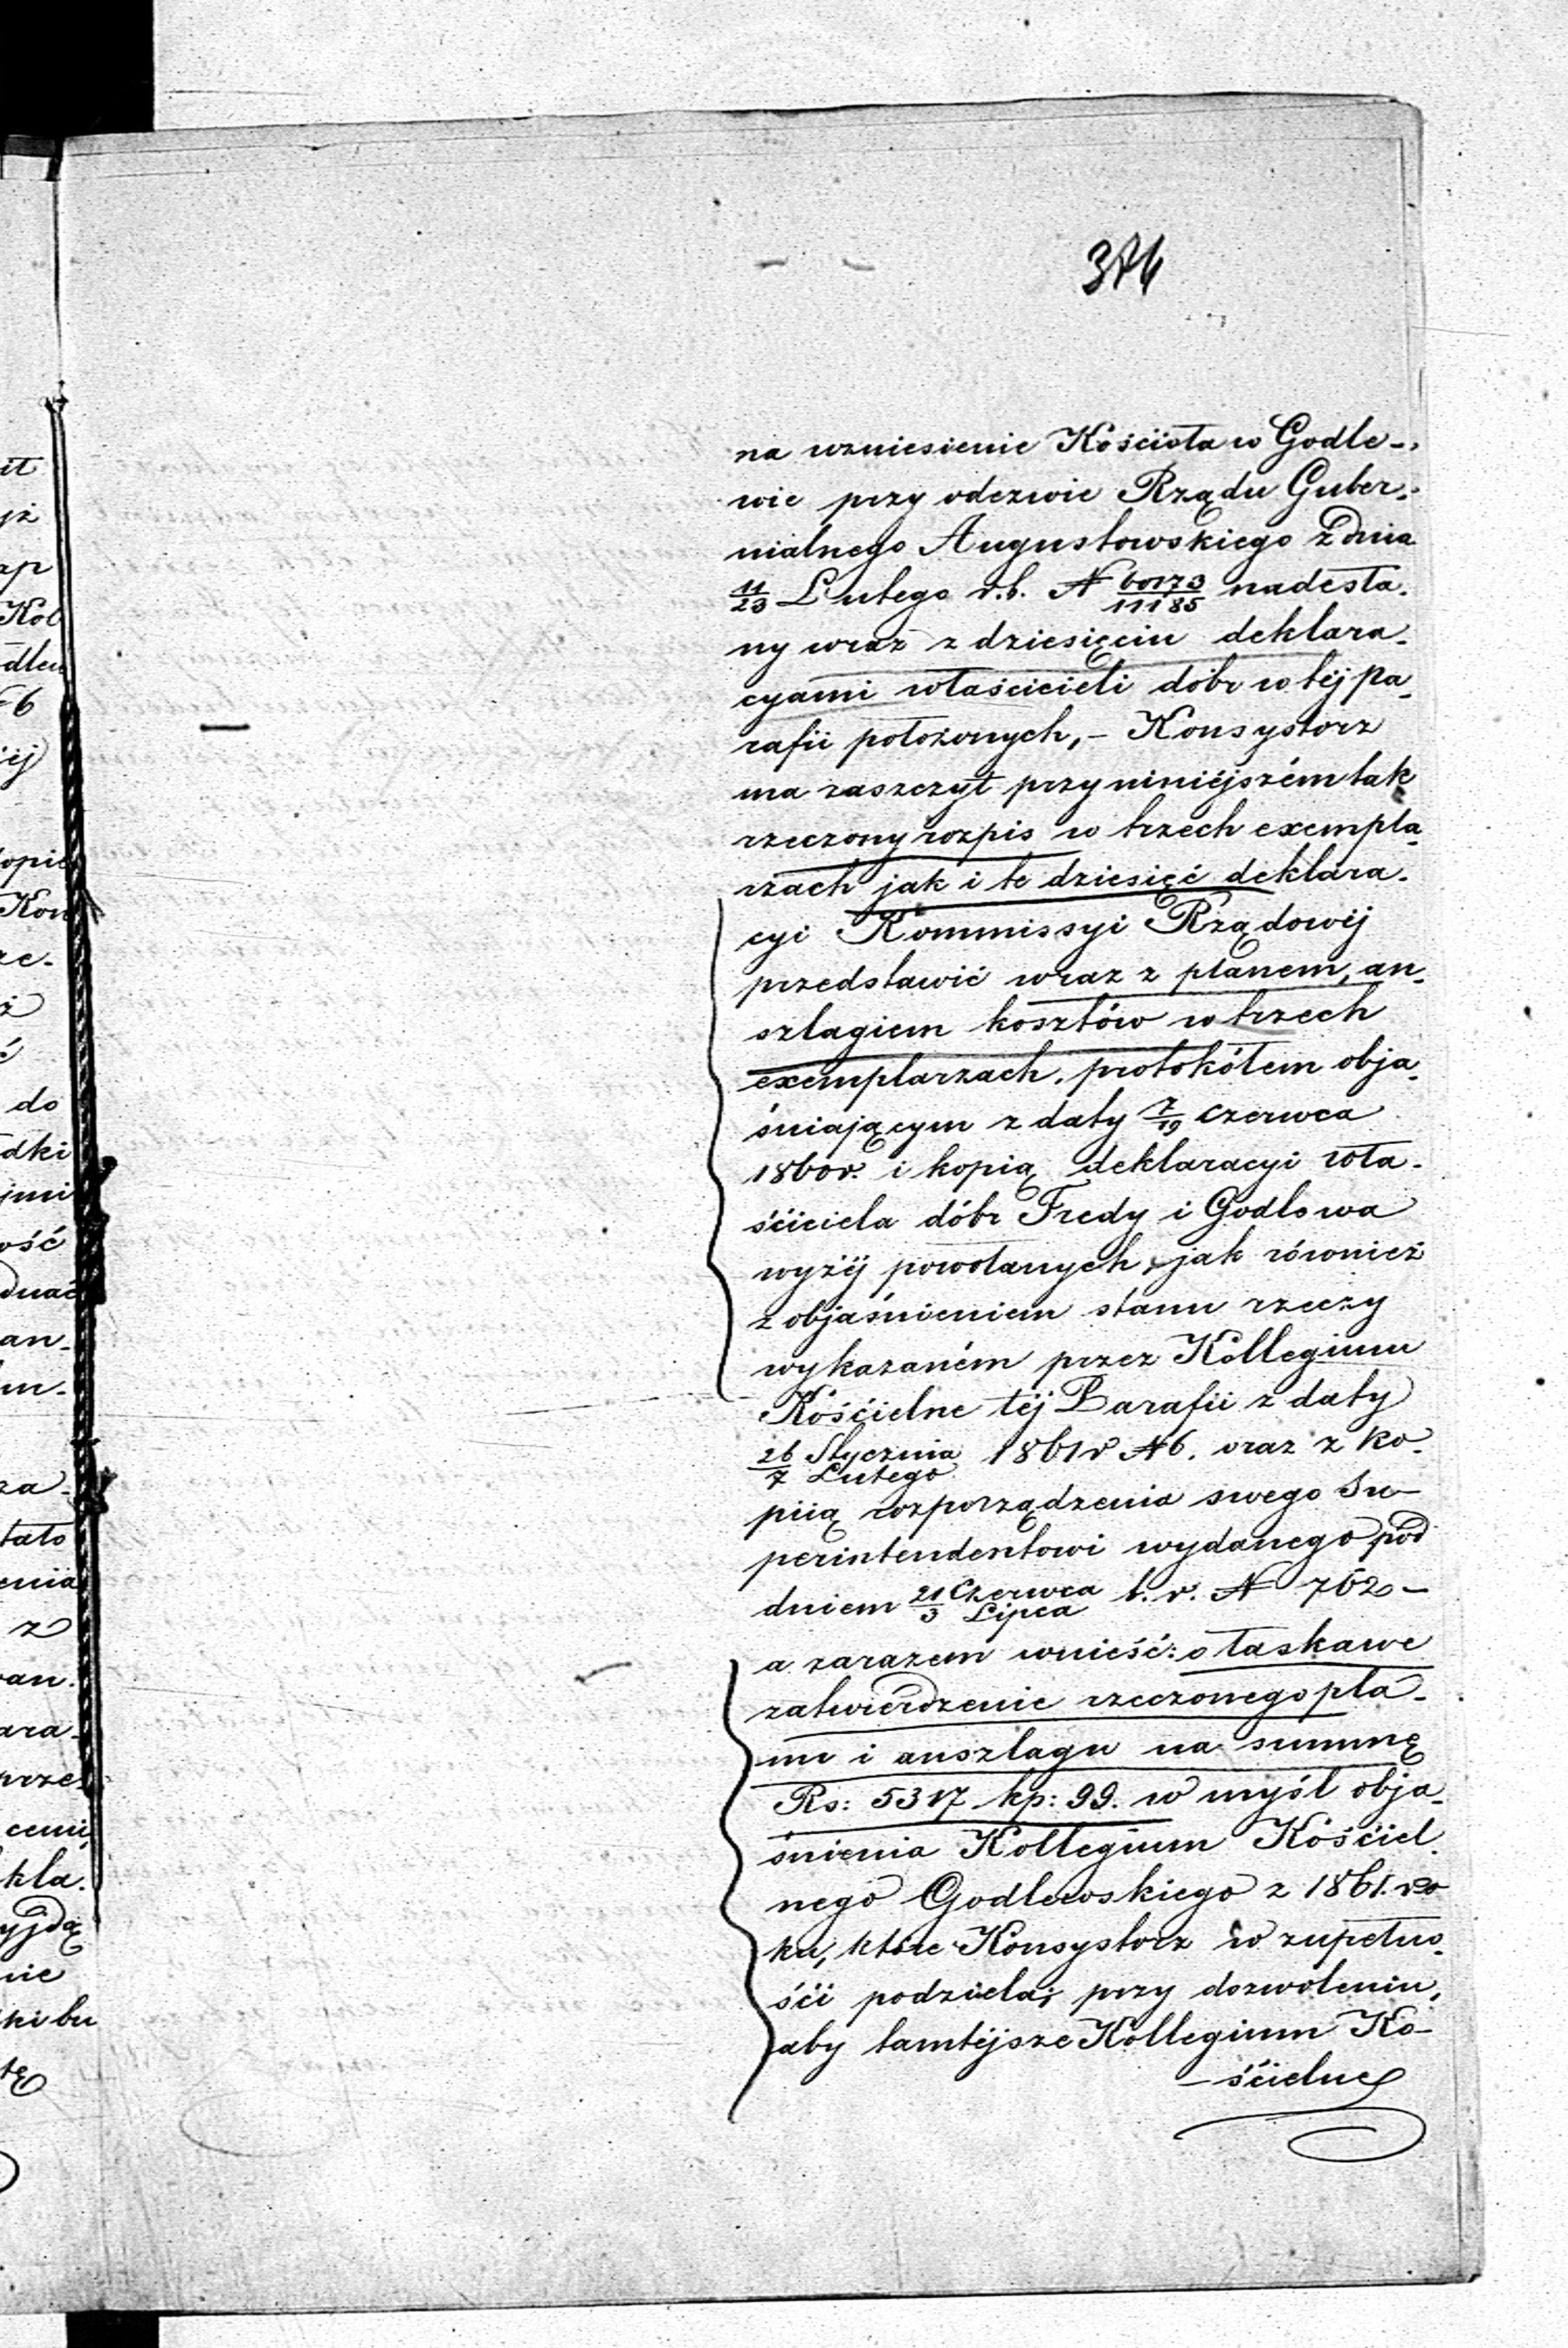 376
na wzniesienie Kościoła w Godle-
wie przy odezwie Rządu Guber-
nialnego Augustowskiego z dnia
11/23 Lutego r.b. N 60173/11185 nadesła-
ny wraz z dziesięciu deklara-
cyami właścicieli dóbr w téj pa-
rafii położonych, – Konsystorz
ma zaszczyt przy niniéjszém tak
rzeczony rozpis w trzech exempla-
rzach jak i te dziesięć deklara-
cyi Kommissyi Rządowéj
przedstawić wraz z planem, an-
szlagiem kosztów w trzech
exemplarzach, protokółem obja-
śniającym z daty 7/19 Czerwca
1860 r. i kopią deklaracyi wła-
ściciela dóbr Fredy i Godlowa
wyżéj powołanych, jak również
z objaśnieniem stanu rzeczy
wykazaném przez Kollegium
Kościelne téj Parafii z daty
26 Stycznia/7 Lutego 1861 r N 6. oraz z ko-
piią rozporządzenia swego Su-
perintendentowi wydanego pod
dniem 21 Czerwca/3 Lipca b. r. N 762 –
a zarazem wnieść: o łaskawe
zatwierdzenie rzeczonego pla-
nu i anszlagu na summę
Rs: 5317 kp: 99. w myśl obja-
śnienia Kollegium Kościel-
nego Godlewskiego z 1861. ro
ku, które Konsystorz w zupełno-
ści podziela; przy dozwoleniu,
aby tamtéjsze Kollegium Ko-
– ścielne